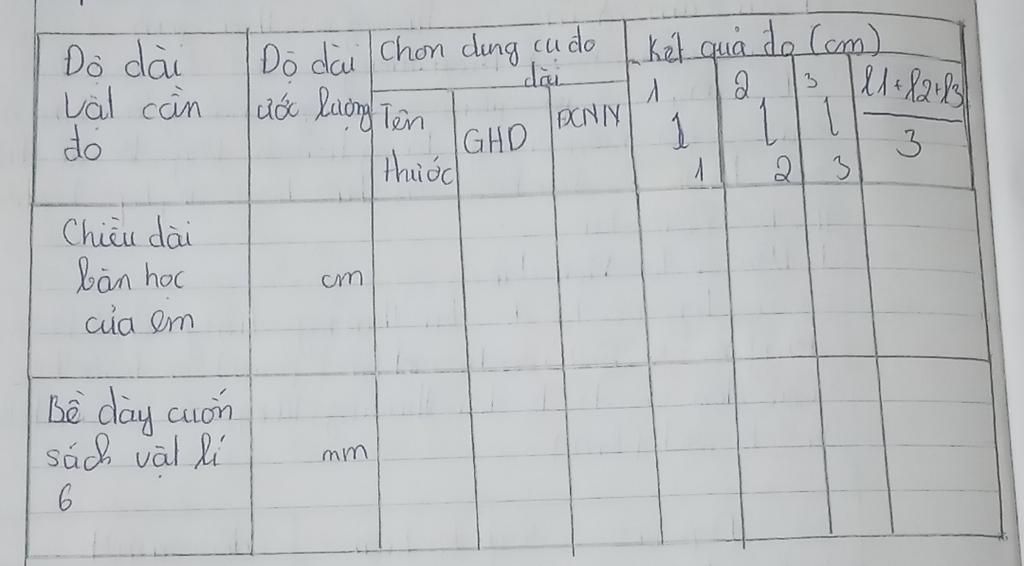 Độ dài
vật cần
đo
Độ dài
ước lượng
Chọn dụng cụ đo
dài
Tên
thước
GHĐ
ĐCNN
Kết quả đo (cm)
1
l
1
2
l
2
3
l
3
l1+l2+l3
3
Chiều dài
bàn học
của em
cm
Bề dày cuốn
sách vật lí
6
mm